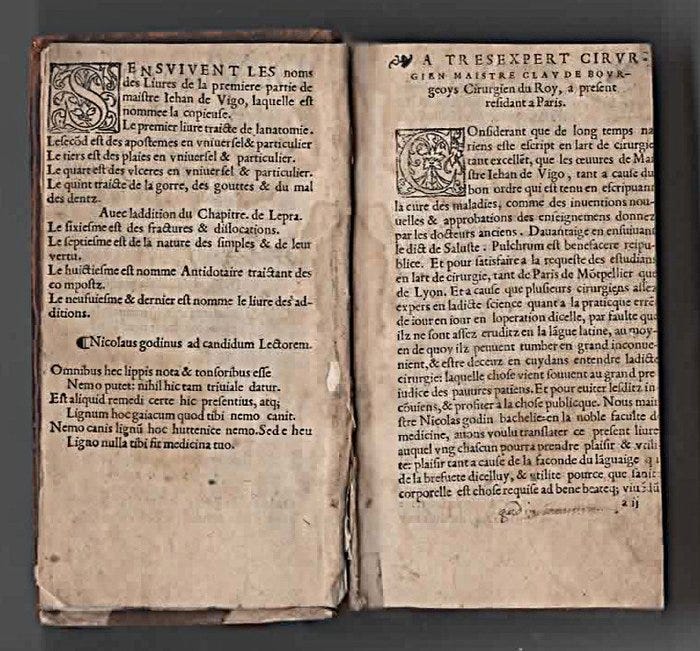 SENSVIVENT LES noms
des Liures de la premiere partie de
maistre Iehan de Vigo, laquelle est
nommee la copieuse.
Le premier liure traicte de lanatomie.
Le secõd est des apostemes en vniuersel & particulier
Le tiers est des plaies en vniuersel & particulier.
Le quart est des vlceres en vniuersel & particulier.
Le quint traicte de la gorre, des gouttes & du mal
des dentz.
Auec laddition du Chapitre. de Lepra.
Le sixiesme est des fractures & dislocations.
Le septiesme est de la nature des simples & de leur
vertu.
Le huictiesme est nomme Antidotaire traictant des
compostz.
Le neufuiesme & dernier est nomme le liure des additions.
¶Nicolaus godinus ad candidum Lectorem.
Omnibus hec lippis nota & tonsoribus esse
Nemo putet: nihil hic tam triuiale datur.
Est aliquid remedi certe hic presentius, atq;
Lignum hoc gaiacum quod tibi nemo canit.
Nemo canis lignũ hoc huttenice nemo. Sed e heu
Ligno nulla tibi fit medicina tuo.
A TRESEXPERT CIRVR-
GIEN MAISTRE CLAVDE BOVR-
geoys Cirurgien du Roy, a present
residant a Paris.
Considerant que de long temps na
riens este escript en lart de cirurgie
tant excellẽt, que les œuures de Mai
stre Iehan de Vigo, tant a cause du
bon ordre qui est tenu en escripuant
la cure des maladies, comme des inuentions nou-
uelles & approbations des enseignemens donnez
par les docteurs anciens. Dauantaige en ensuiuant
le dict de Saluste. Pulchrum est benefacere reipu-
blice. Et pour satisfaire a la requeste des estudians
en lart de cirurgie, tant de Paris de Mõtpellier que
de Lyon. Et a cause que plusieurs cirurgiens assez
expers en ladicte science quant a la practicque errẽt
de iour en iour en loperation dicelle, par faulte que
ilz ne sont assez eruditz en la lãgue latine, au moy-
en de quoy ilz peuuent tumber en grand inconue-
nient, & estre deceuz en cuydans entendre ladicte
cirurgie: laquelle chose vient souuent au grand pre
iudice des pauures patiens. Et pour euiter lesditz in
cõuiens, & profiter a la chose publicque. Nous mai
stre Nicolas godin bachelier en la noble faculte de
medicine, auons voulu translater ce present liure
auquel vng chascun pourra prendre plaisir & vtili
te: plaisir tant a cause de la faconde du lãguaige q
de la brefuete dicelluy, & vtilite pource, que sanit
corporelle est chose requise ad bene beateq; viuẽdũ
a ij